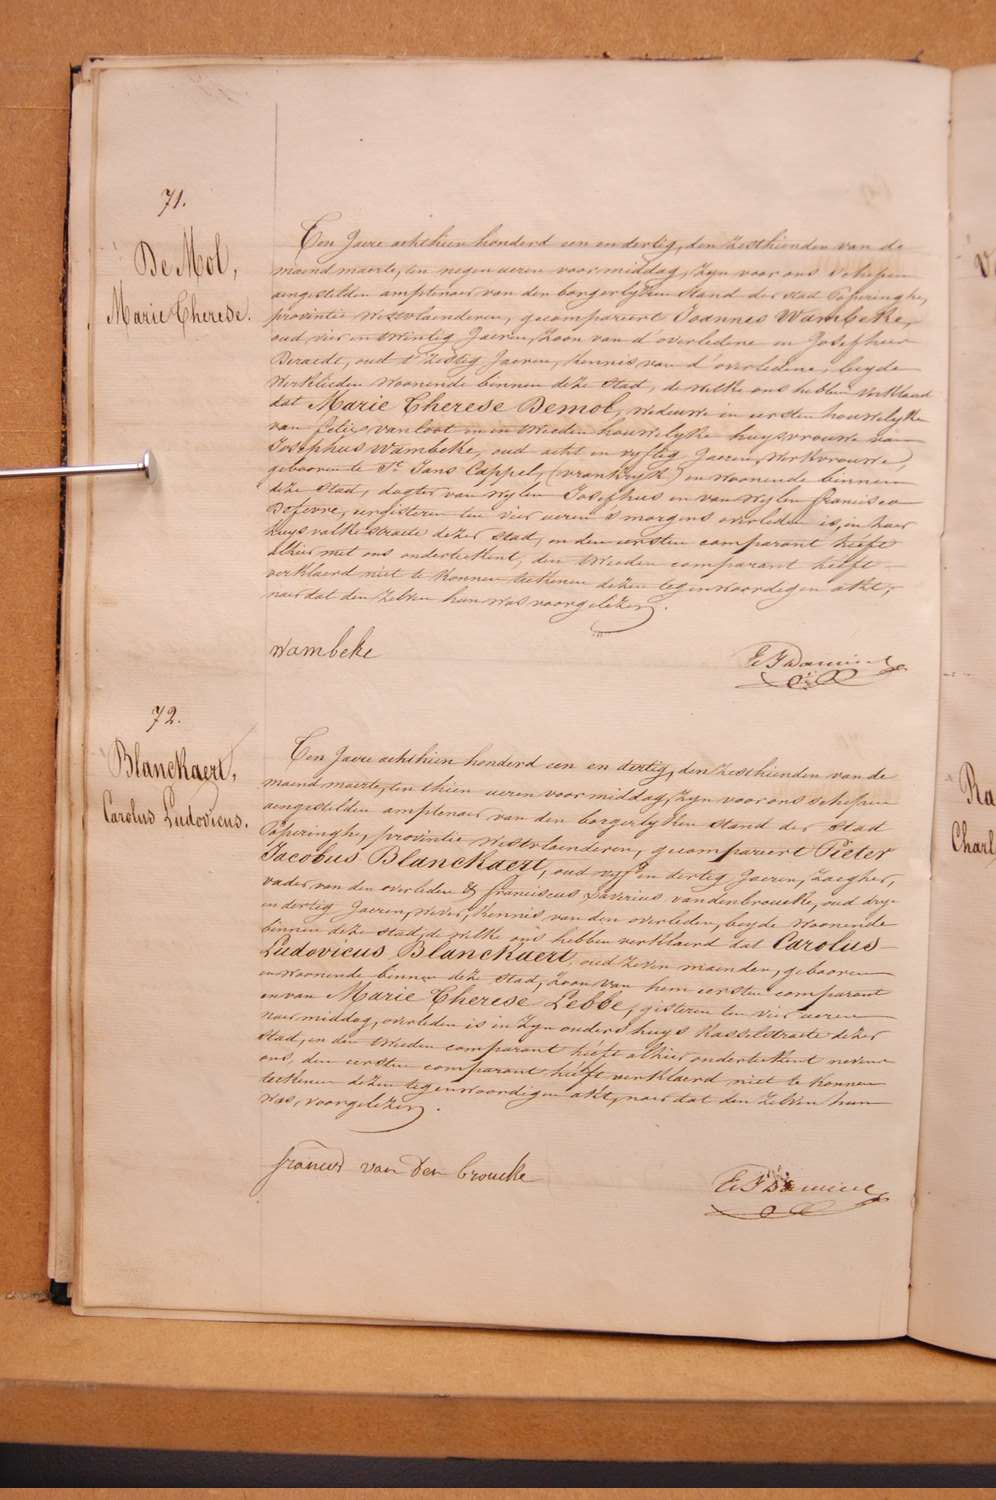 71.
De Mol,
Marie Cherese.
Ten Jaere achthien honderd een en dertig, den zesthienden van de
maend maerte, ten negen ueren voormiddag, zyn voor ons schepen
aengestelden amptenaer van den borgerlyken stand der stad Poperinghe,
provintie Westvlaenderen, gecompareert Joannes Wambeke,
oud vier en twintig Jaeren, zoon van d'overledene en Josephus
Beraedt, oud zestig Jaeren, kennis van d'overledene, beyde
Werklieden woonende binnen deze stad, de welke ons hebben verklaerd
dat Marie Cherese Demol, weduwe in eersten houwelyke
van felix van loot en in tweeden houwelyke huysvrouwe van
Josephus Wambeke, oud acht en vyftig Jaeren, Werkvrouwe,
gebooren te St. Jans Cappel, (vrankryk) en woonende binnen
deze stad, dogter van wylen Josephus en van wylen francisca
Defevre, eergisteren ten vier ueren 's morgens overleden is, in haer
huys valkestraete dezer stad, en den eersten comparant heeft
alhier met ons onderteekent, den tweeden comparant heeft
verklaerd niet te konnen teekenen dezen tegenwoordigen akt,
naer dat den zelven hun was voorgelezen.
Wambeke
72.
Blanckaert,
Carolus Ludovicus.
Ten Jaere achthien honderd een en dertig, den zesthienden van de
maend maerte, ten thien ueren voormiddag, zyn voor ons schepen
aengestelden amptenaer van den borgerlyken stand der stad
Poperinghe, provintie Westvlaenderen, gecompareert Pieter
Jacobus Blanckaert, oud vyf en dertig Jaeren, zaegher,
vader van den overledene & franciscus Xaverius vandenbroucke, oud dry-
en dertig Jaeren, wever, kennis van den overleden, beyde woonende
binnen deze stad, de welke ons hebben verklaerd dat Carolus
Ludovicus Blanckaert, oud zeven maenden, gebooren
en woonende binnen deze stad, zoon van hem eersten comparant
en van Marie Cherese Lebbe, gisteren ten vier ueren
naermiddag, overleden is in zyn ouders huys Kasselstraete dezer
stad, en den tweeden comparant heeft alhier onderteekent nevens
ons, den eersten comparant heeft verklaerd niet te konnen
teekenen dezen tegenwoordigen akt, naer dat den zelven hun
was, voorgelezen.
van Den broucke
Ra
Charl